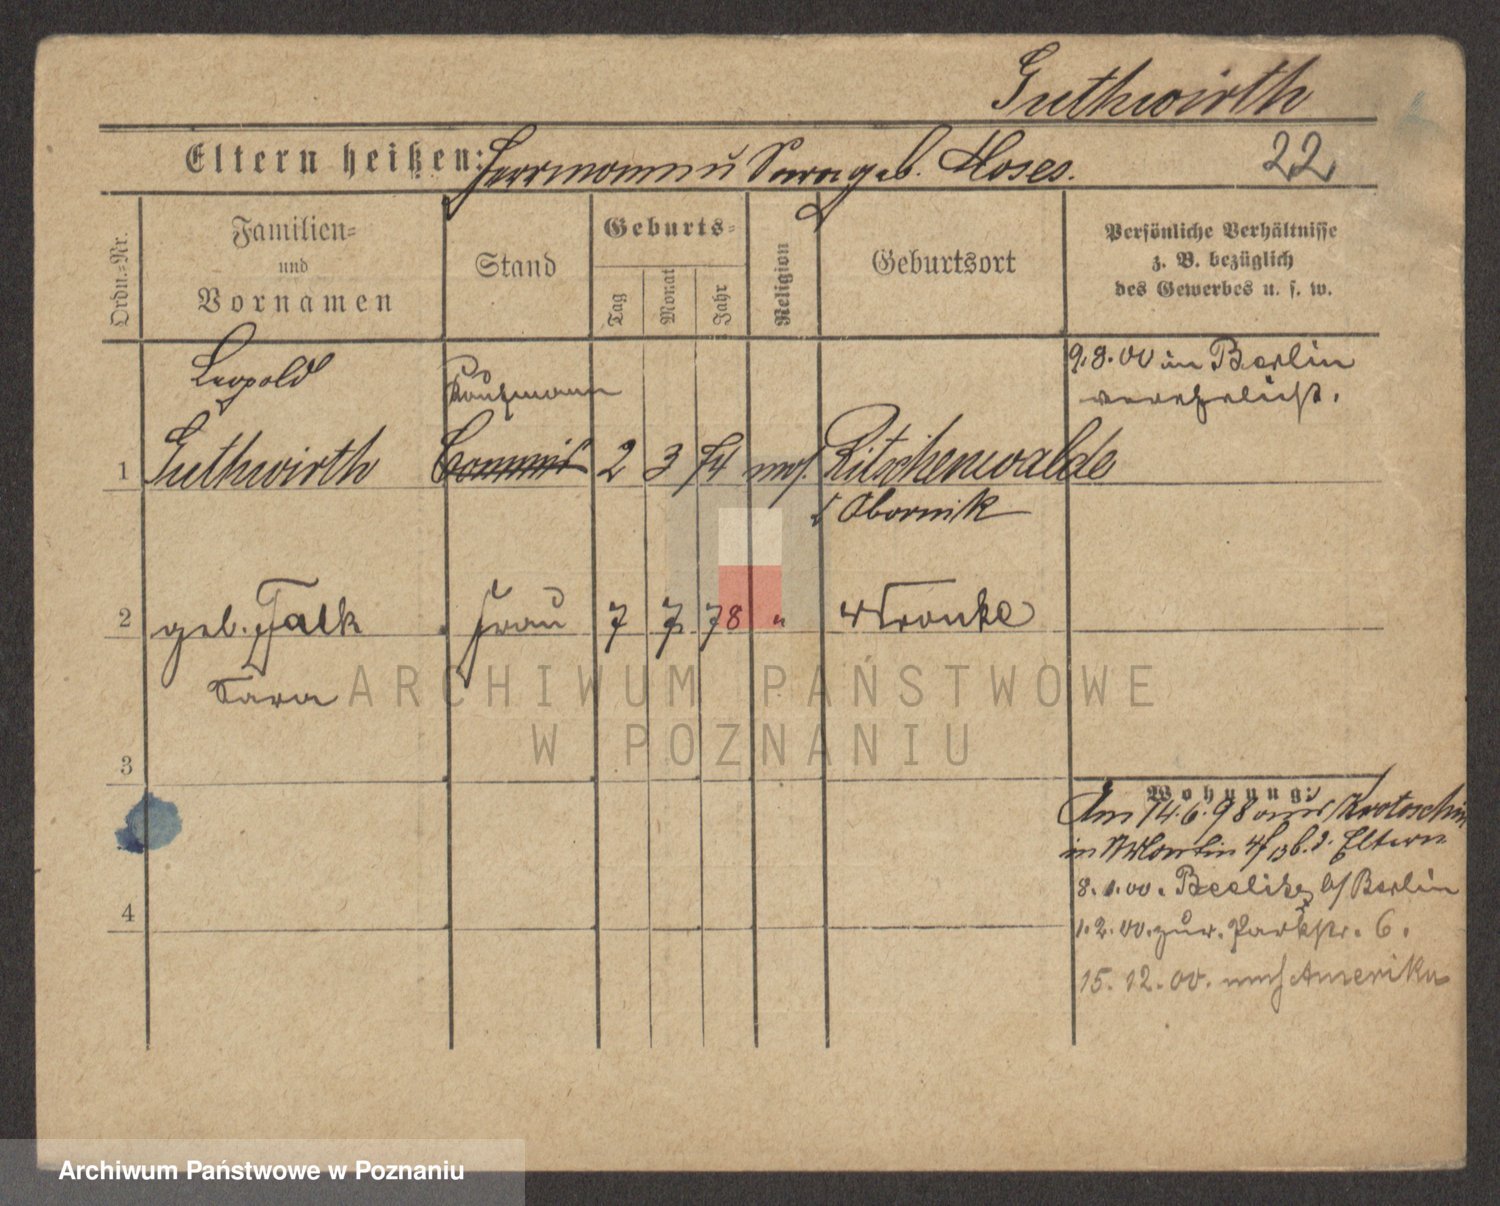 Guthwirth
Eltern heißen: Herrmann u Sara geb. Moses.
22
Ordn.-Nr.
Familien-
und
Vornamen
Stand
Geburts-
Tag
Monat
Jahr
Religion
Geburtsort
Persönliche Verhältnisse
z. B. bezüglich
des Gewerbes u. s. w.
Leopold
Kaufmann
9.8.00 in Berlin
verehelicht.
1 Guthwirth Commis 2 3 74 mos. Ritschenwalde
Obornik
2 geb. Falk Frau 7 7. 78 " Wronke
Sara
3
4
Wohnung:
Am 14.6.98 aus Krotoschin
in 4/13 b. d. Eltern
8.1.00. Beelitz b/Berlin
1.2.00. zur. Parkstr. 6.
15.12.00. nach Amerika
ARCHIWUM PAŃSTWOWE
W POZNANIU
Archiwum Państwowe w Poznaniu